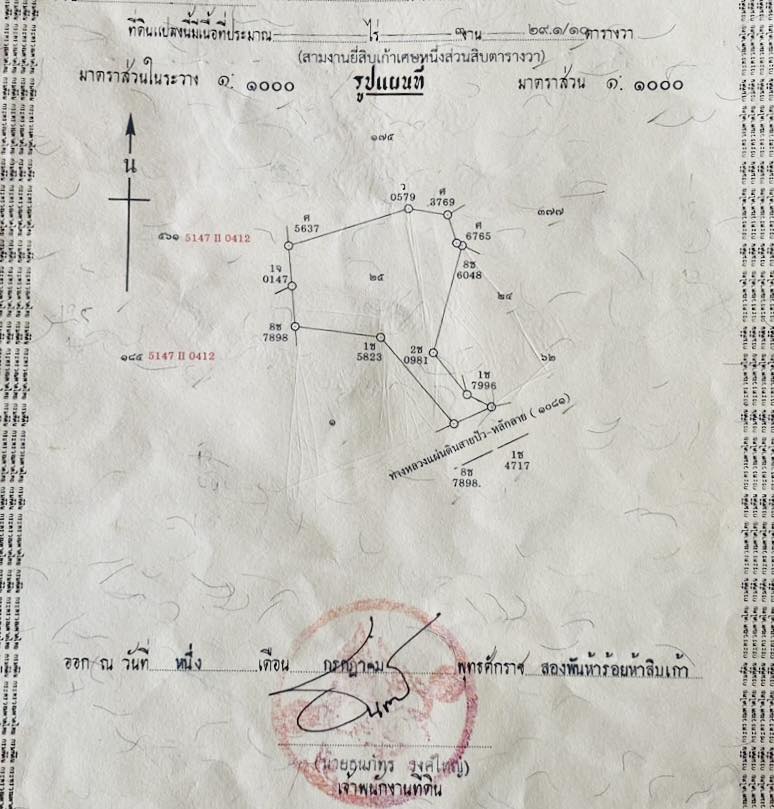 ที่ดินแปลงนี้มีเนื้อที่ประมาณ ไร่ ๓ งาน ๒๙.๑/๑๐ ตารางวา
(สามงานยี่สิบเก้าเศษหนึ่งส่วนสิบตารางวา)
มาตราส่วนในระวาง ๑: ๑๐๐๐ รูปแผนที่ มาตราส่วน ๑: ๑๐๐๐
๑๗๕
น
ว
0579
ศ
3769
๓๗๗
ศ
5637
ศ
6765
๕๖๑ 5147 II 0412
8ช
6048
1จ
0147
๒๕
๒๔
8ช
7898
1ช
5823
2ช
0981
๑๘๕ 5147 II 0412
๖๒
1ช
7996
๑
ทางหลวงแผ่นดินสายปัว-หลักลาย ( ๑๐๘๑)
1ช
4717
8ช
7898.
ออก ณ วันที่ หนึ่ง เดือน กรกฎาคม พุทธศักราช สองพันห้าร้อยห้าสิบเก้า
เจ้าพนักงานที่ดิน